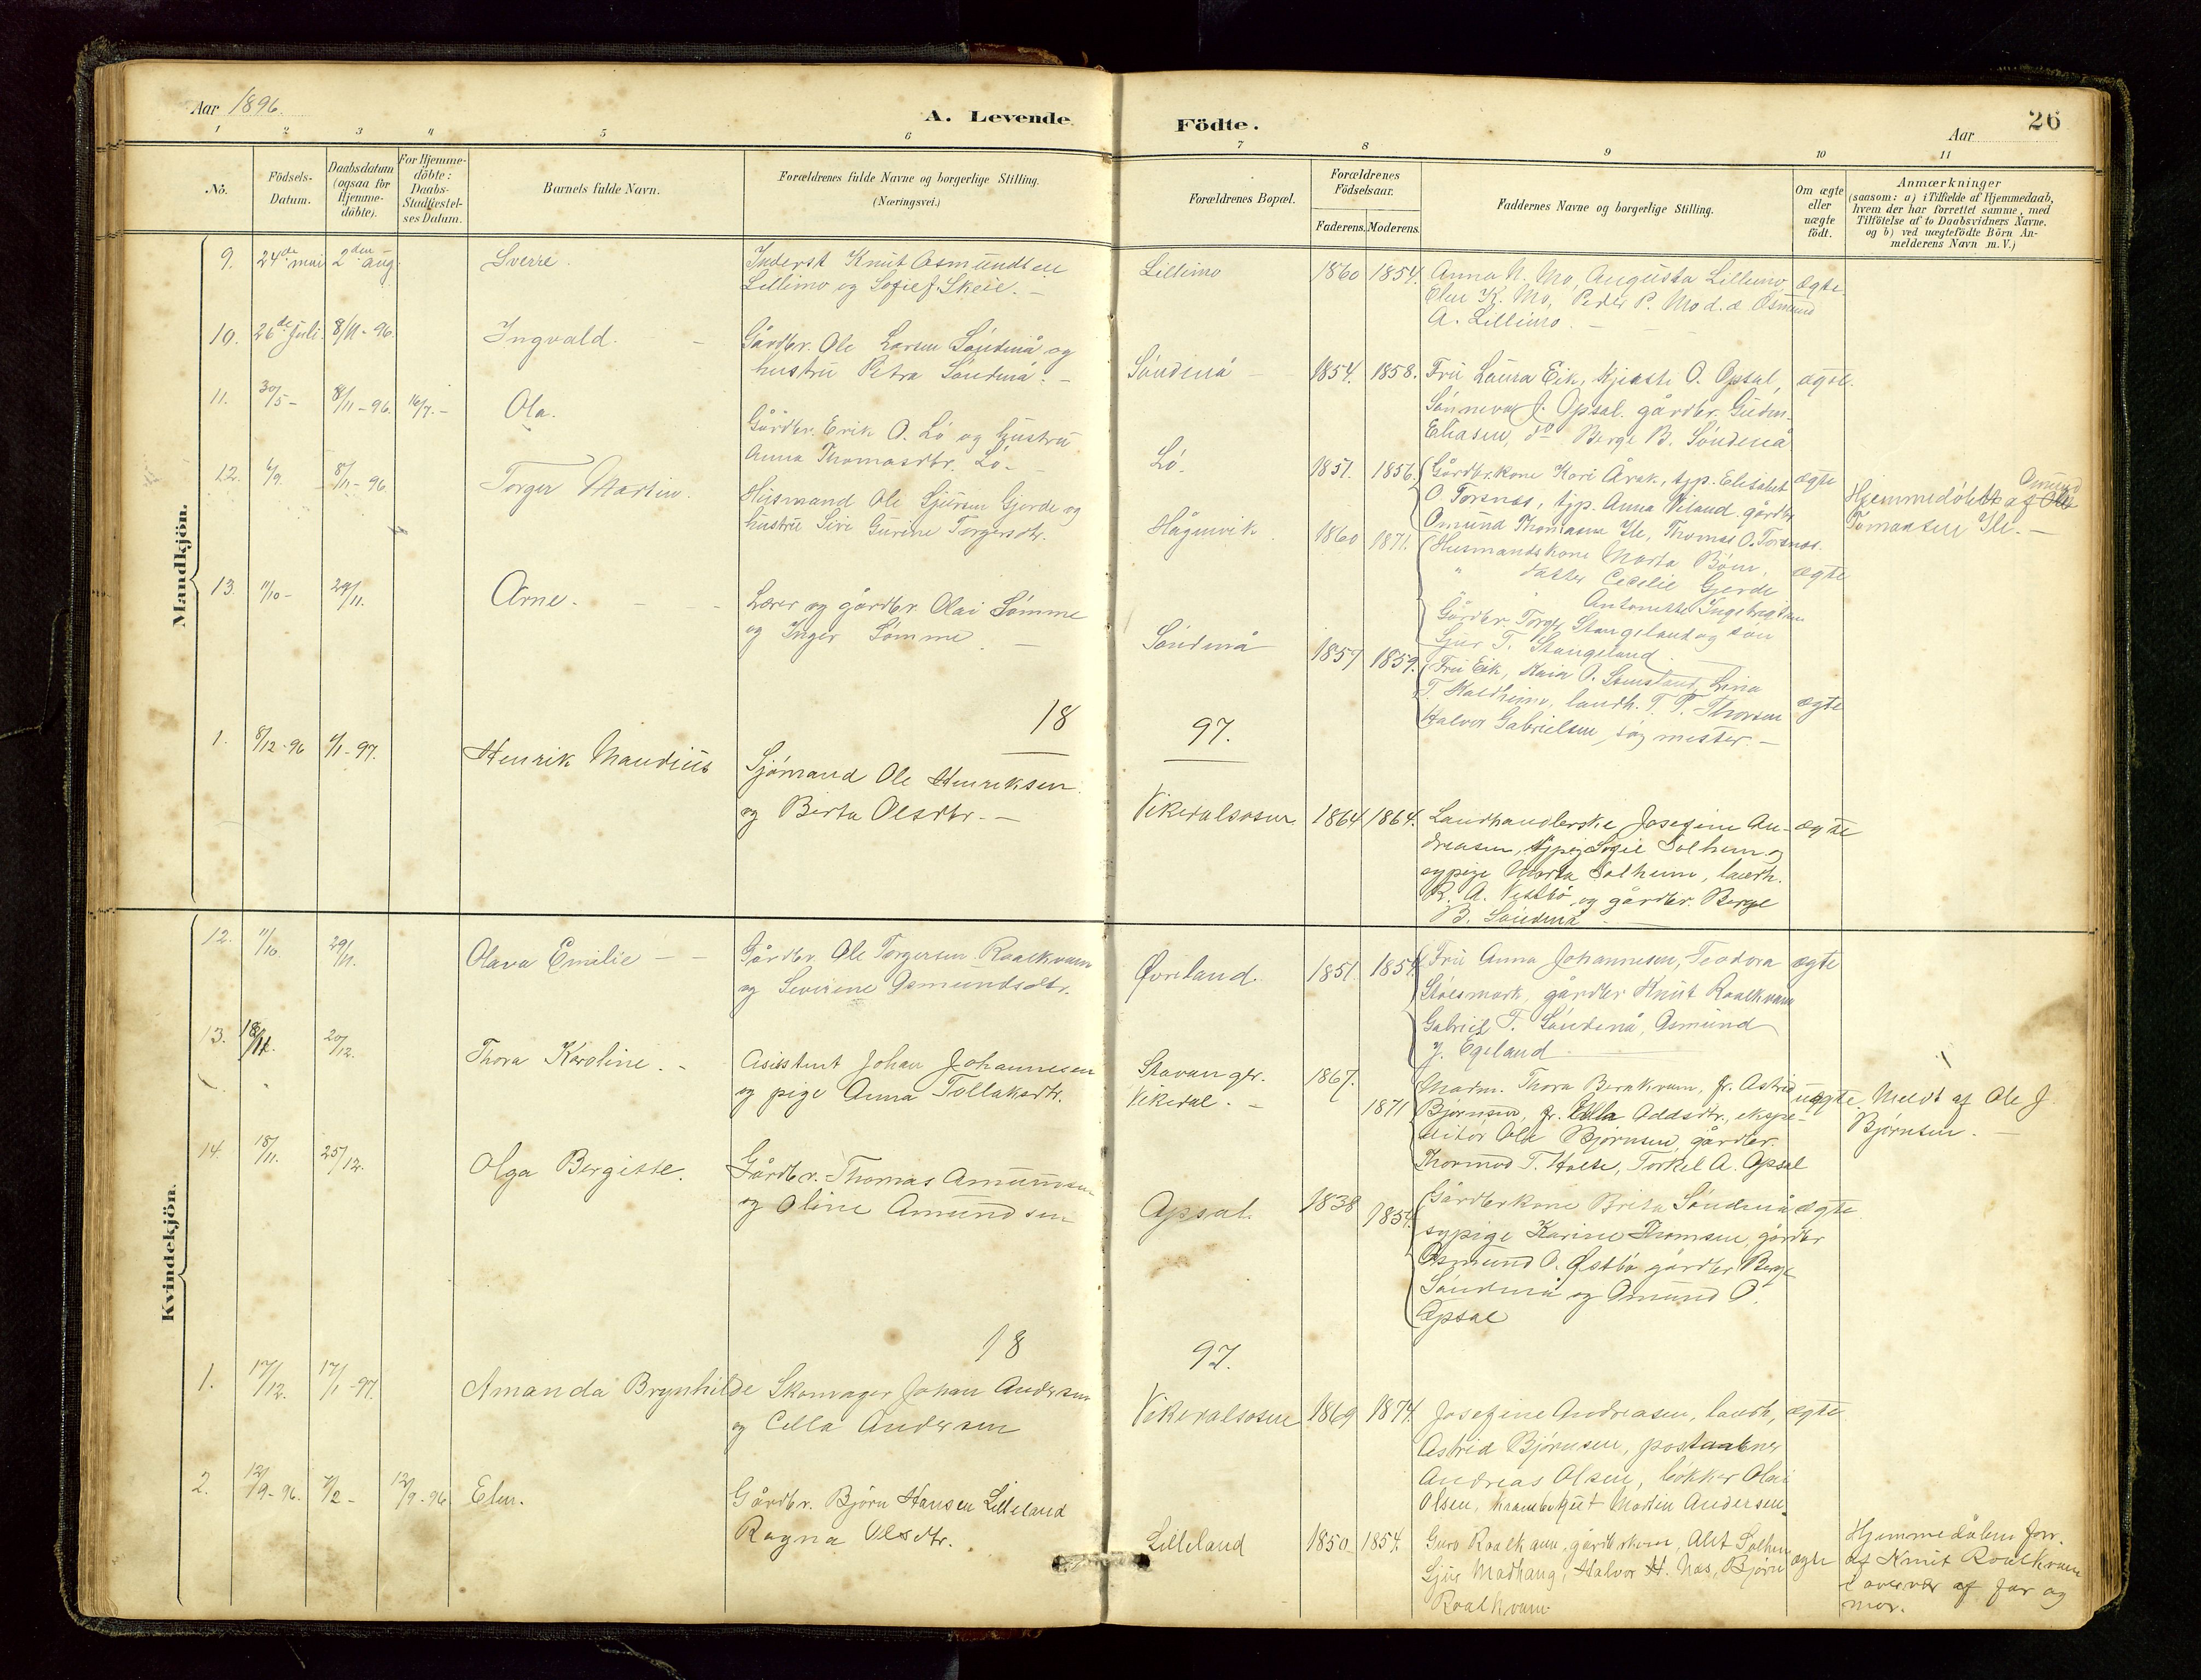 Aar 1896.
A. Levende
Födte.
Aar
26
1 2 3 4 5 6 7 8 9 10 11
No.
Födsels-
Datum.
Daabsdatum
(ogsaa for
Hjemme-
döbte).
For Hjemme-
döbte:
Daabs-
Stadfæstel-
ses Datum.
Barnets fulde Navn.
Forældrenes fulde Navne og borgerlige Stilling.
(Næringsvei.)
Forældrenes Bopæl.
Forældrenes
Födselsaar.
Faderens. Moderens.
Faddernes Navne og borgerlige Stilling.
Om ægte
eller
uægte
födt.
Anmærkninger
(saasom: a) i Tilfælde af Hjemmedaab,
hvem der har forrettet samme, med
Tilföielse af to Daabsvidners Navne,
og b) ved uægtefödte Börn An-
melderens Navn m. V.)
Mandkjön.
9. 24de mai 2den aug. Sverre.
Inderst Knut Osmundsen
Lillimo og Sofie J. Skeie. -
Lillimo 1860 1854.
Anna N. Mo, Augusta Lillimo
Elen K. Mo, Peder P. Mo d.æ Osmund
A. Lillimo. -
ægte.
10. 26de Juli. 8/11 - 96. Ingvald. -
Gårdbr. Ole Larsen Söndenå og
hustru Petra Söndenå. -
Söndenå - 1854. 1858.
Fru Laura Eik, Kjersti O. Opsal,
Sönneva J. Opsal. gårdbr. Gudm.
Eliasen, do Berge B. Söndenå
ægte.
11. 30/5 - 8/11 - 96. 16/7. - Ola.
Gårdbr. Erik O. Lö og hustru
Anna Thomasdtr. Lö. -
Lö. 1851. 1856.
Gårdbr.kone Kari Årek, tjp. Elisabet
O. Torsnes, tjp. Anna Viland. gårdbr.
Omund Thomasen Ile, Thomas O. Torsnes.
ægte
Hjemmedöbt af Omund
Tomassen Ile. -
12. 6/9. 8/11 - 96. Torger Martin.
Husmand Ole Sjursen Gjerde og
hustru Siri Gurine Torgersdtr.
Hågenvik 1860 1871.
Husmandskone Marta Böen,
" datter Cecelie Gjerde
" Antonette Ingebrigtsen
Gårdbr. Torger Stangeland og sön
Sjur T. Stangeland
ægte
13. 11/10 - 29/11. Arne. - - -
Lærer og gårdbr. Olai Sömme
og Inger Sömme. -
Söndenå 1857 1859.
Fru Eik, Maria O. Stensland, Lina
T. Haldheim, landh. T. P. Thorsen
Halvor Gabrielsen, sagmester. -
ægte
18 97.
1. 8/12 - 96 6/1 - 97. Henrik Mandius
Sjömand Ole Henriksen
og Berta Olsdtr. -
Vikedalsosen 1864 1864.
Landhandlerske Josefine An-
dreasen, tjpige Sofie Solheim og
sypige Marta Solheim, landh.
R. A. Vestbö og gårdbr. Berge
B. Söndenå
ægte
Kvindekjön.
12. 11/10 29/11. Olava Emilie - -
Gårdbr. Ole Torgersen Raalkvam
og Severine Osmundsdtr.
Øvreland. 1851. 1854.
Fru Anna Johannesen, Teodora
Stölsmark, gårdbr Knut Raalkvam
Gabriel T. Söndenå, Osmund
J. Egeland
ægte
13. 18/11. 20/12. Thora Karoline. -
Assistent Johan Johannesen
og pige Anna Tollaksdtr.
Stavanger.
Vikedal. -
1867.
1871
Madm. Thora Berakvam, fr. Astrid
Björnsen, fr. Ella Oddsdtr., ekspe-
ditör Ole Björnsen, gårdbr.
Thormod T. Holte, Torkel A. Opsal
uægte. Meldt af Ole J.
Björnsen. -
14. 18/11. 25/12. Olga Bergitte.
Gårdbr. Thomas Amundsen
og Oline Amundsen
Opsal. 1838 1854.
Gårdbr.kone Brita Söndenå
sypige Karine Thomsen, gårdbr
Osmund O. Østbö gårdbr Berge
Söndenå og Omund O.
Opsal
ægte
18 97.
1. 17/12. 17/1 - 97. Amanda Brynhilde
Skomager Johan Andersen
og Cella Andersen
Vikedalsosen 1869 1874.
Josefine Andreasen, landh,
Astrid Björnsen, postaabner
Andreas Olsen, bökker Olai
Olsen, krambodgut Martin Andersen.
ægte
2. 12/9 - 96. 7/2 - 12/9 - 96 Elen.
Gårdbr. Björn Hansen Lilleland
Ragna Olsdtr.
Lilleland 1850 1854.
Guro Raalkvam, gårdbrkone, Alit Solheim
Sjur Madhaug, Halvor H. Næs, Björn
Roalkvam
ægte
Hjemmedåben forr.
af Knut Roalkvam
i overvær af far og
mor.